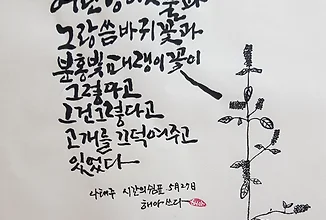 노랑 씀바귀 꽃과
분홍빛 패랭이 꽃이
그렇다고
그건 그렇다고
고개를 끄덕여주고
있었다
나태주 시간의 쉼표 5月27日
해아 쓰다